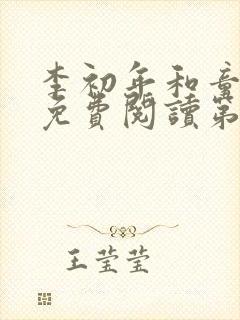 李初年和童
免費閱讀第
王莹莹